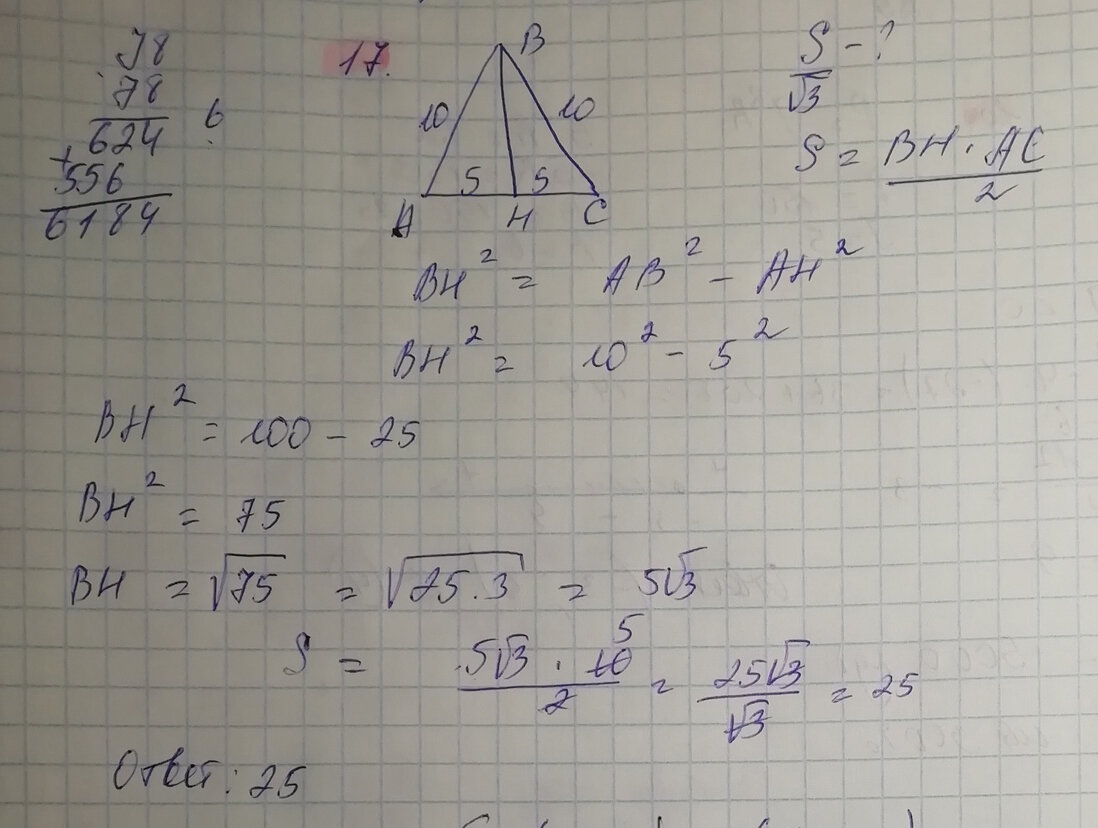 78
78
624 6
+
556
6184
17.
B
10 10
5 5
A H C
S/√3 - ?
S = BH · AC / 2
BH² = AB² - AH²
BH² = 10² - 5²
BH² = 100 - 25
BH² = 75
BH = √75 = √25·3 = 5√3
S = 5√3 · 10 / 2 = 25√3 / √3 = 25
5
Ответ: 25